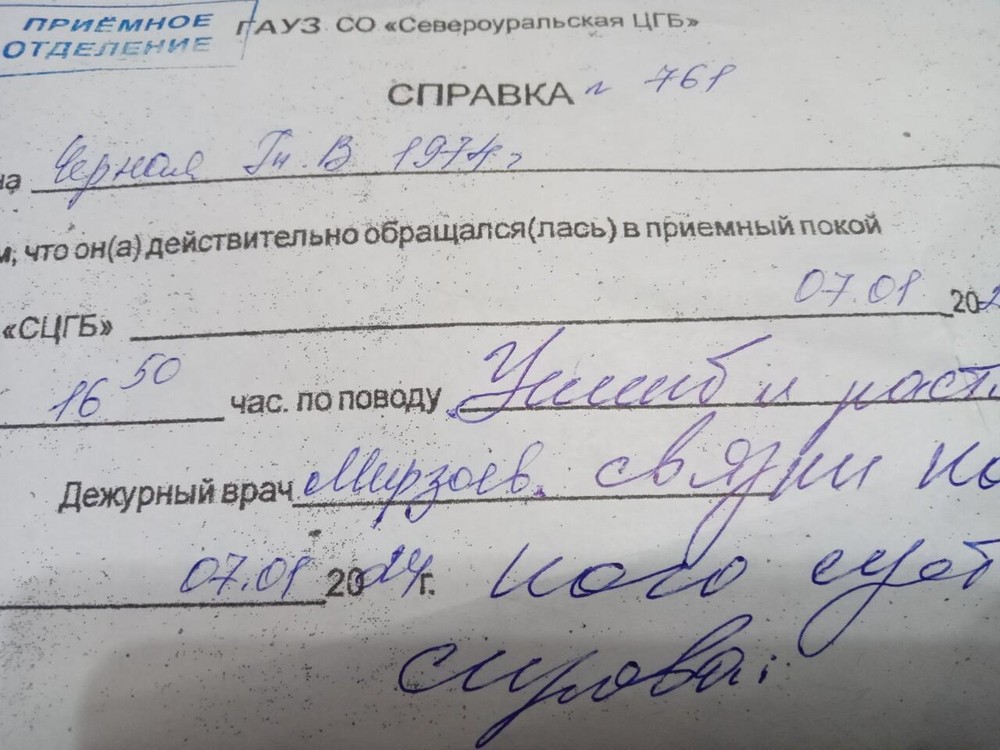 ПРИЁМНОЕ
ОТДЕЛЕНИЕ
ГАУЗ СО «Североуральская ЦГБ»
СПРАВКА 761
на Черная В 1974г
м, что он(а) действительно обращался(лась) в приемный покой
«СЦГБ» 07.01 202
16 50 час. по поводу Ушиб и раст
Дежурный врач Мирзоев. связки ко
07.01 2024 г. ного суст